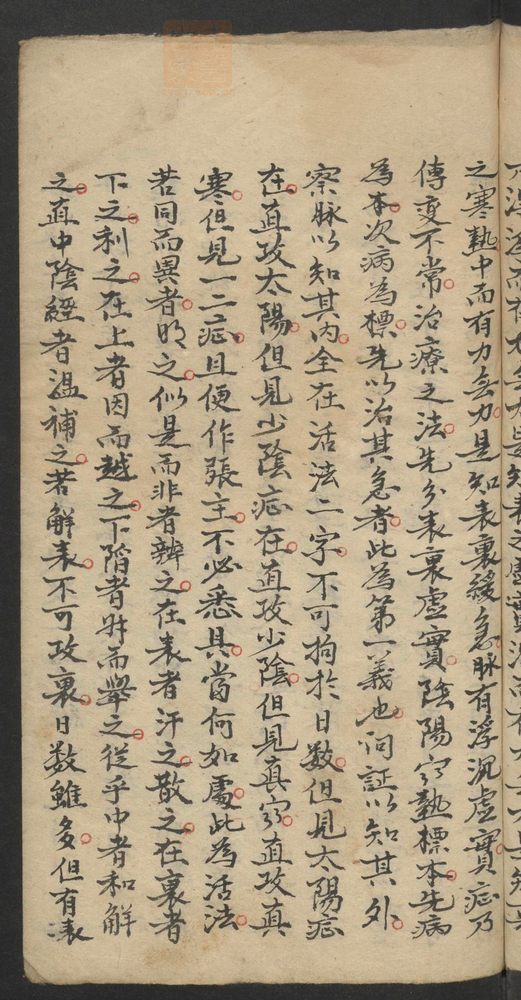 之寒熱中而有力無力是知表裏緩急脉有浮沉虚實症乃
傳变不常治療之法先分表裏虚實陰陽寒熱標本先病
為本次病為標先以治其急者此為第一義也问証以知其外
察脉以知其内全在活法二字不可拘於日数但見太陽症
在直攻太陽但見少陰症在直攻少陰但見真寒直攻真
寒但見一二症且便作張主不必悉具當何如處此為活法
若同而異者明之似是而非者辨之在表者汗之散之在裏者
下之利之在上者因而越之下陷者升而舉之從乎中者和解
之直中陰經者溫補之若解表不可攻裏日数雖多但有表